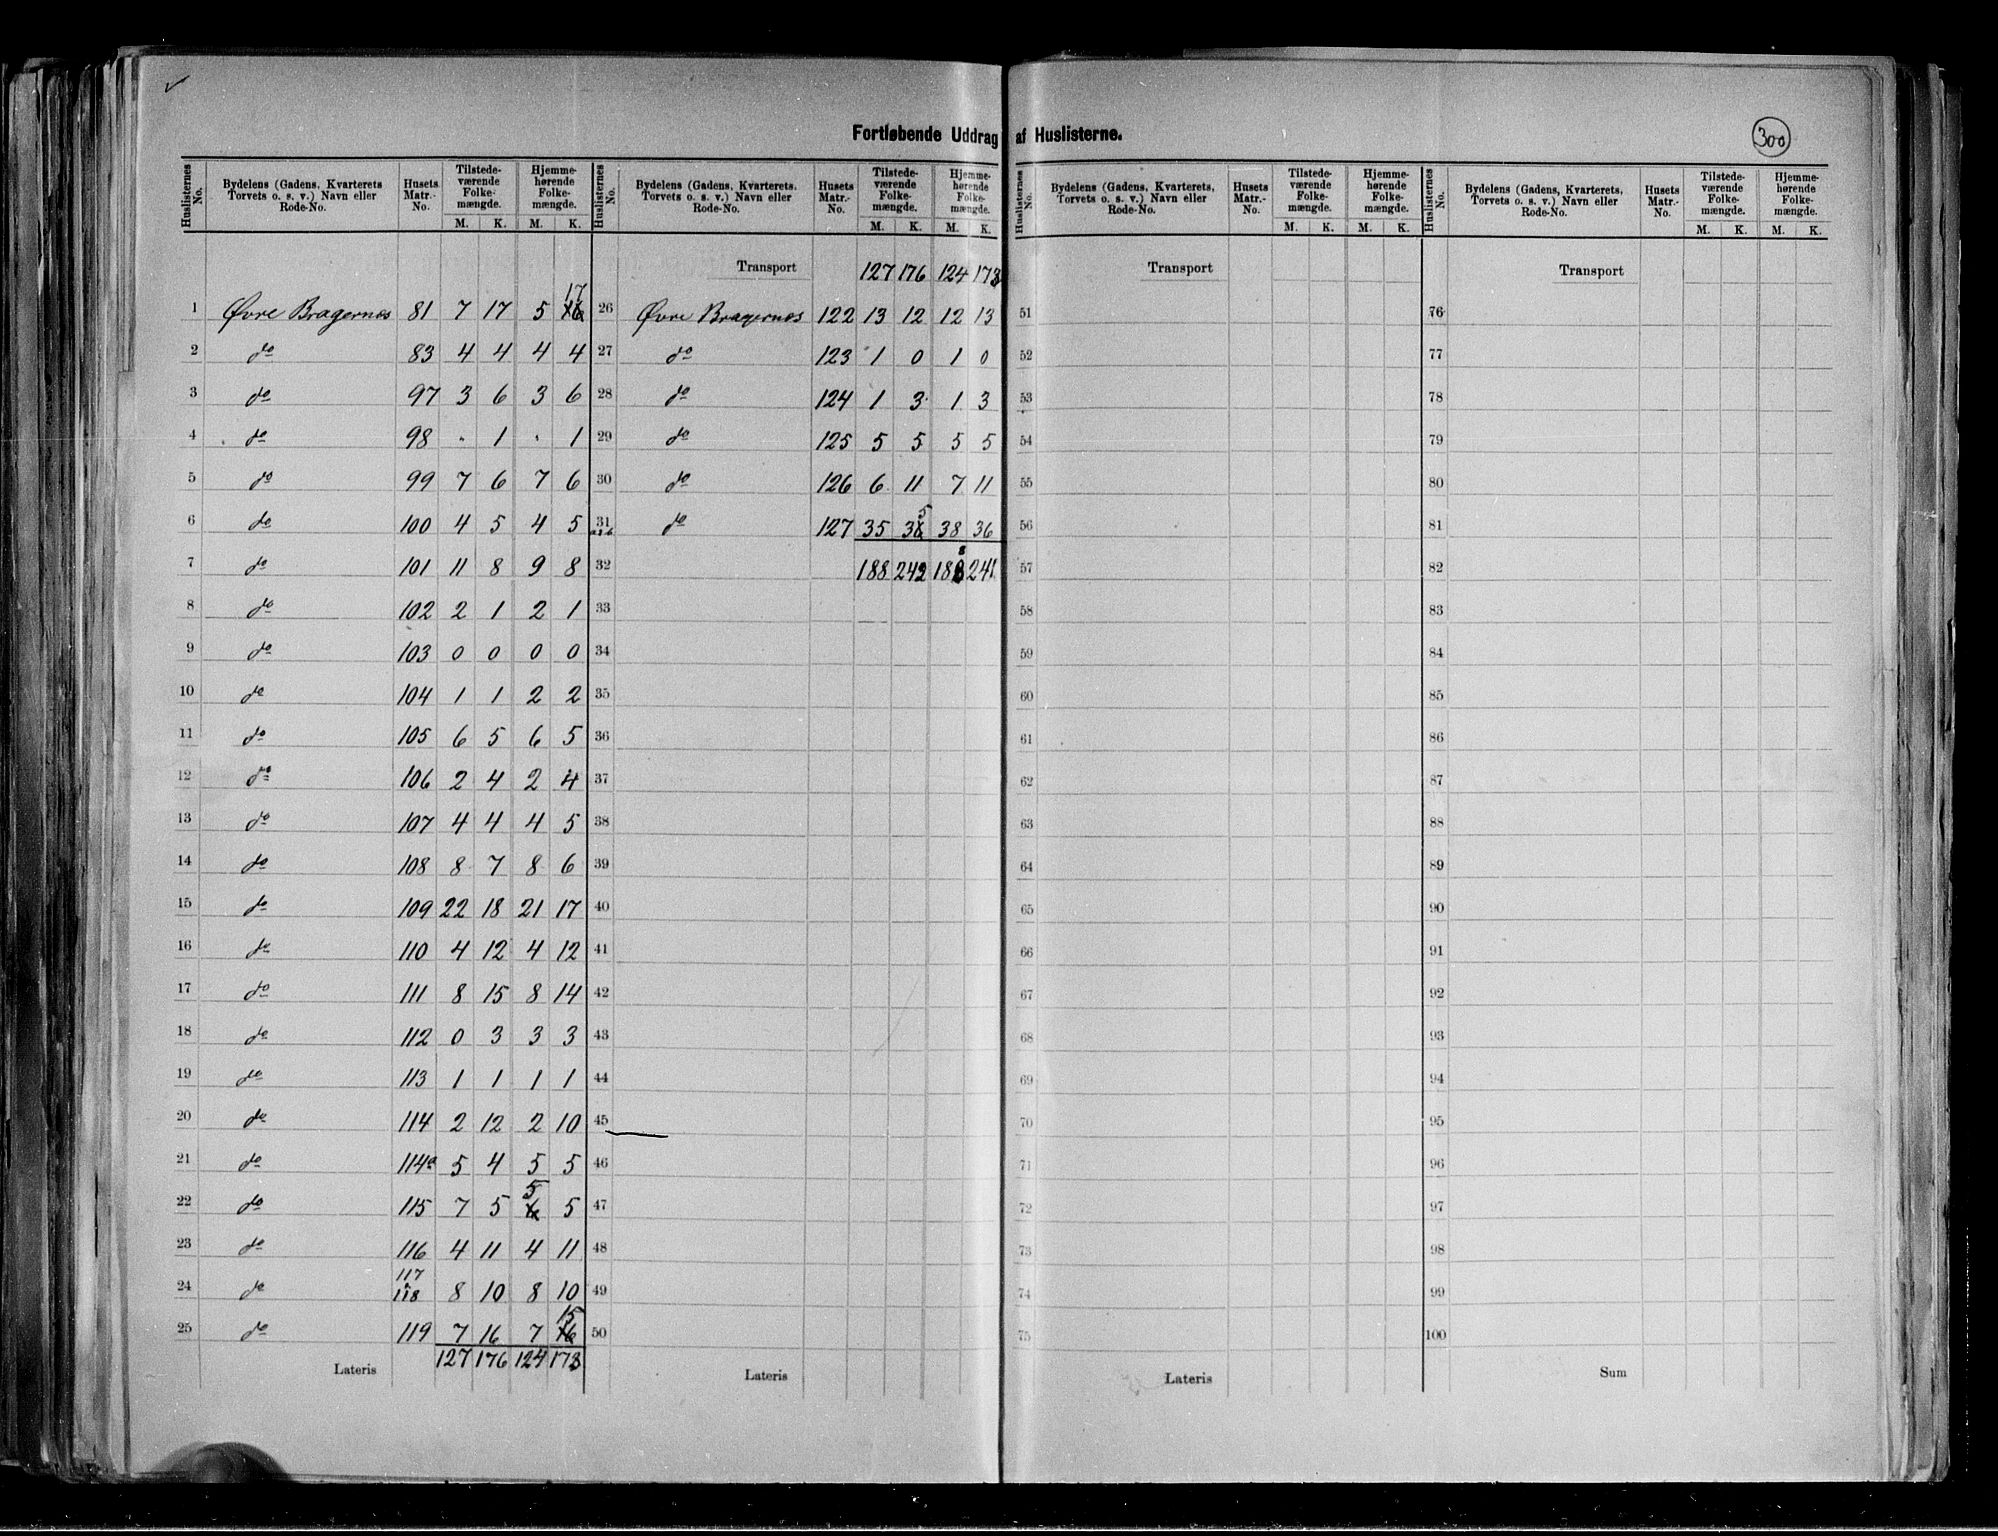 Fortløbende Uddrag af Huslisterne.
300
Huslisternes No. | Bydelens (Gadens, Kvarterets Torvets o. s. v.) Navn eller Rode-No. | Husets Matr.-No. | Tilstedeværende Folkemængde. M. K. | Hjemmehørende Folkemængde. M. K.
1 Øvre Bragernes 81 7 17 5 16 17
2 do 83 4 4 4 4
3 do 97 3 6 3 6
4 do 98 . 1 . 1
5 do 99 7 6 7 6
6 do 100 4 5 4 5
7 do 101 11 8 9 8
8 do 102 2 1 2 1
9 do 103 0 0 0 0
10 do 104 1 1 2 2
11 do 105 6 5 6 5
12 do 106 2 4 2 4
13 do 107 4 4 4 5
14 do 108 8 7 8 6
15 do 109 22 18 21 17
16 do 110 4 12 4 12
17 do 111 8 15 8 14
18 do 112 0 3 3 3
19 do 113 1 1 1 1
20 do 114 2 12 2 10
21 do 114a 5 4 5 5
22 do 115 7 5 6 5 5
23 do 116 4 11 4 11
24 do 117 118 8 10 8 10
25 do 119 7 16 7 16 15
Lateris 127 176 124 173
Huslisternes No. | Bydelens (Gadens, Kvarterets, Torvets o. s. v.) Navn eller Rode-No. | Husets Matr.-No. | Tilstedeværende Folkemængde. M. K. | Hjemmehørende Folkemængde. M. K.
Transport 127 176 124 173
26 Øvre Bragernes 122 13 12 12 13
27 do 123 1 0 1 0
28 do 124 1 3 1 3
29 do 125 5 5 5 5
30 do 126 6 11 7 11
31 a&b do 127 35 36 5 38 36
32 188 242 188 8 241
33
34
35
36
37
38
39
40
41
42
43
44
45
46
47
48
49
50
Lateris
Huslisternes No. | Bydelens (Gadens, Kvarterets, Torvets o. s. v.) Navn eller Rode-No. | Husets Matr.-No. | Tilstedeværende Folkemængde. M. K. | Hjemmehørende Folkemængde. M. K.
Transport
51
52
53
54
55
56
57
58
59
60
61
62
63
64
65
66
67
68
69
70
71
72
73
74
75
Lateris
Huslisternes No. | Bydelens (Gadens, Kvarterets, Torvets o. s. v.) Navn eller Rode-No. | Husets Matr.-No. | Tilstedeværende Folkemængde. M. K. | Hjemmehørende Folkemængde. M. K.
Transport
76
77
78
79
80
81
82
83
84
85
86
87
88
89
90
91
92
93
94
95
96
97
98
99
100
Sum